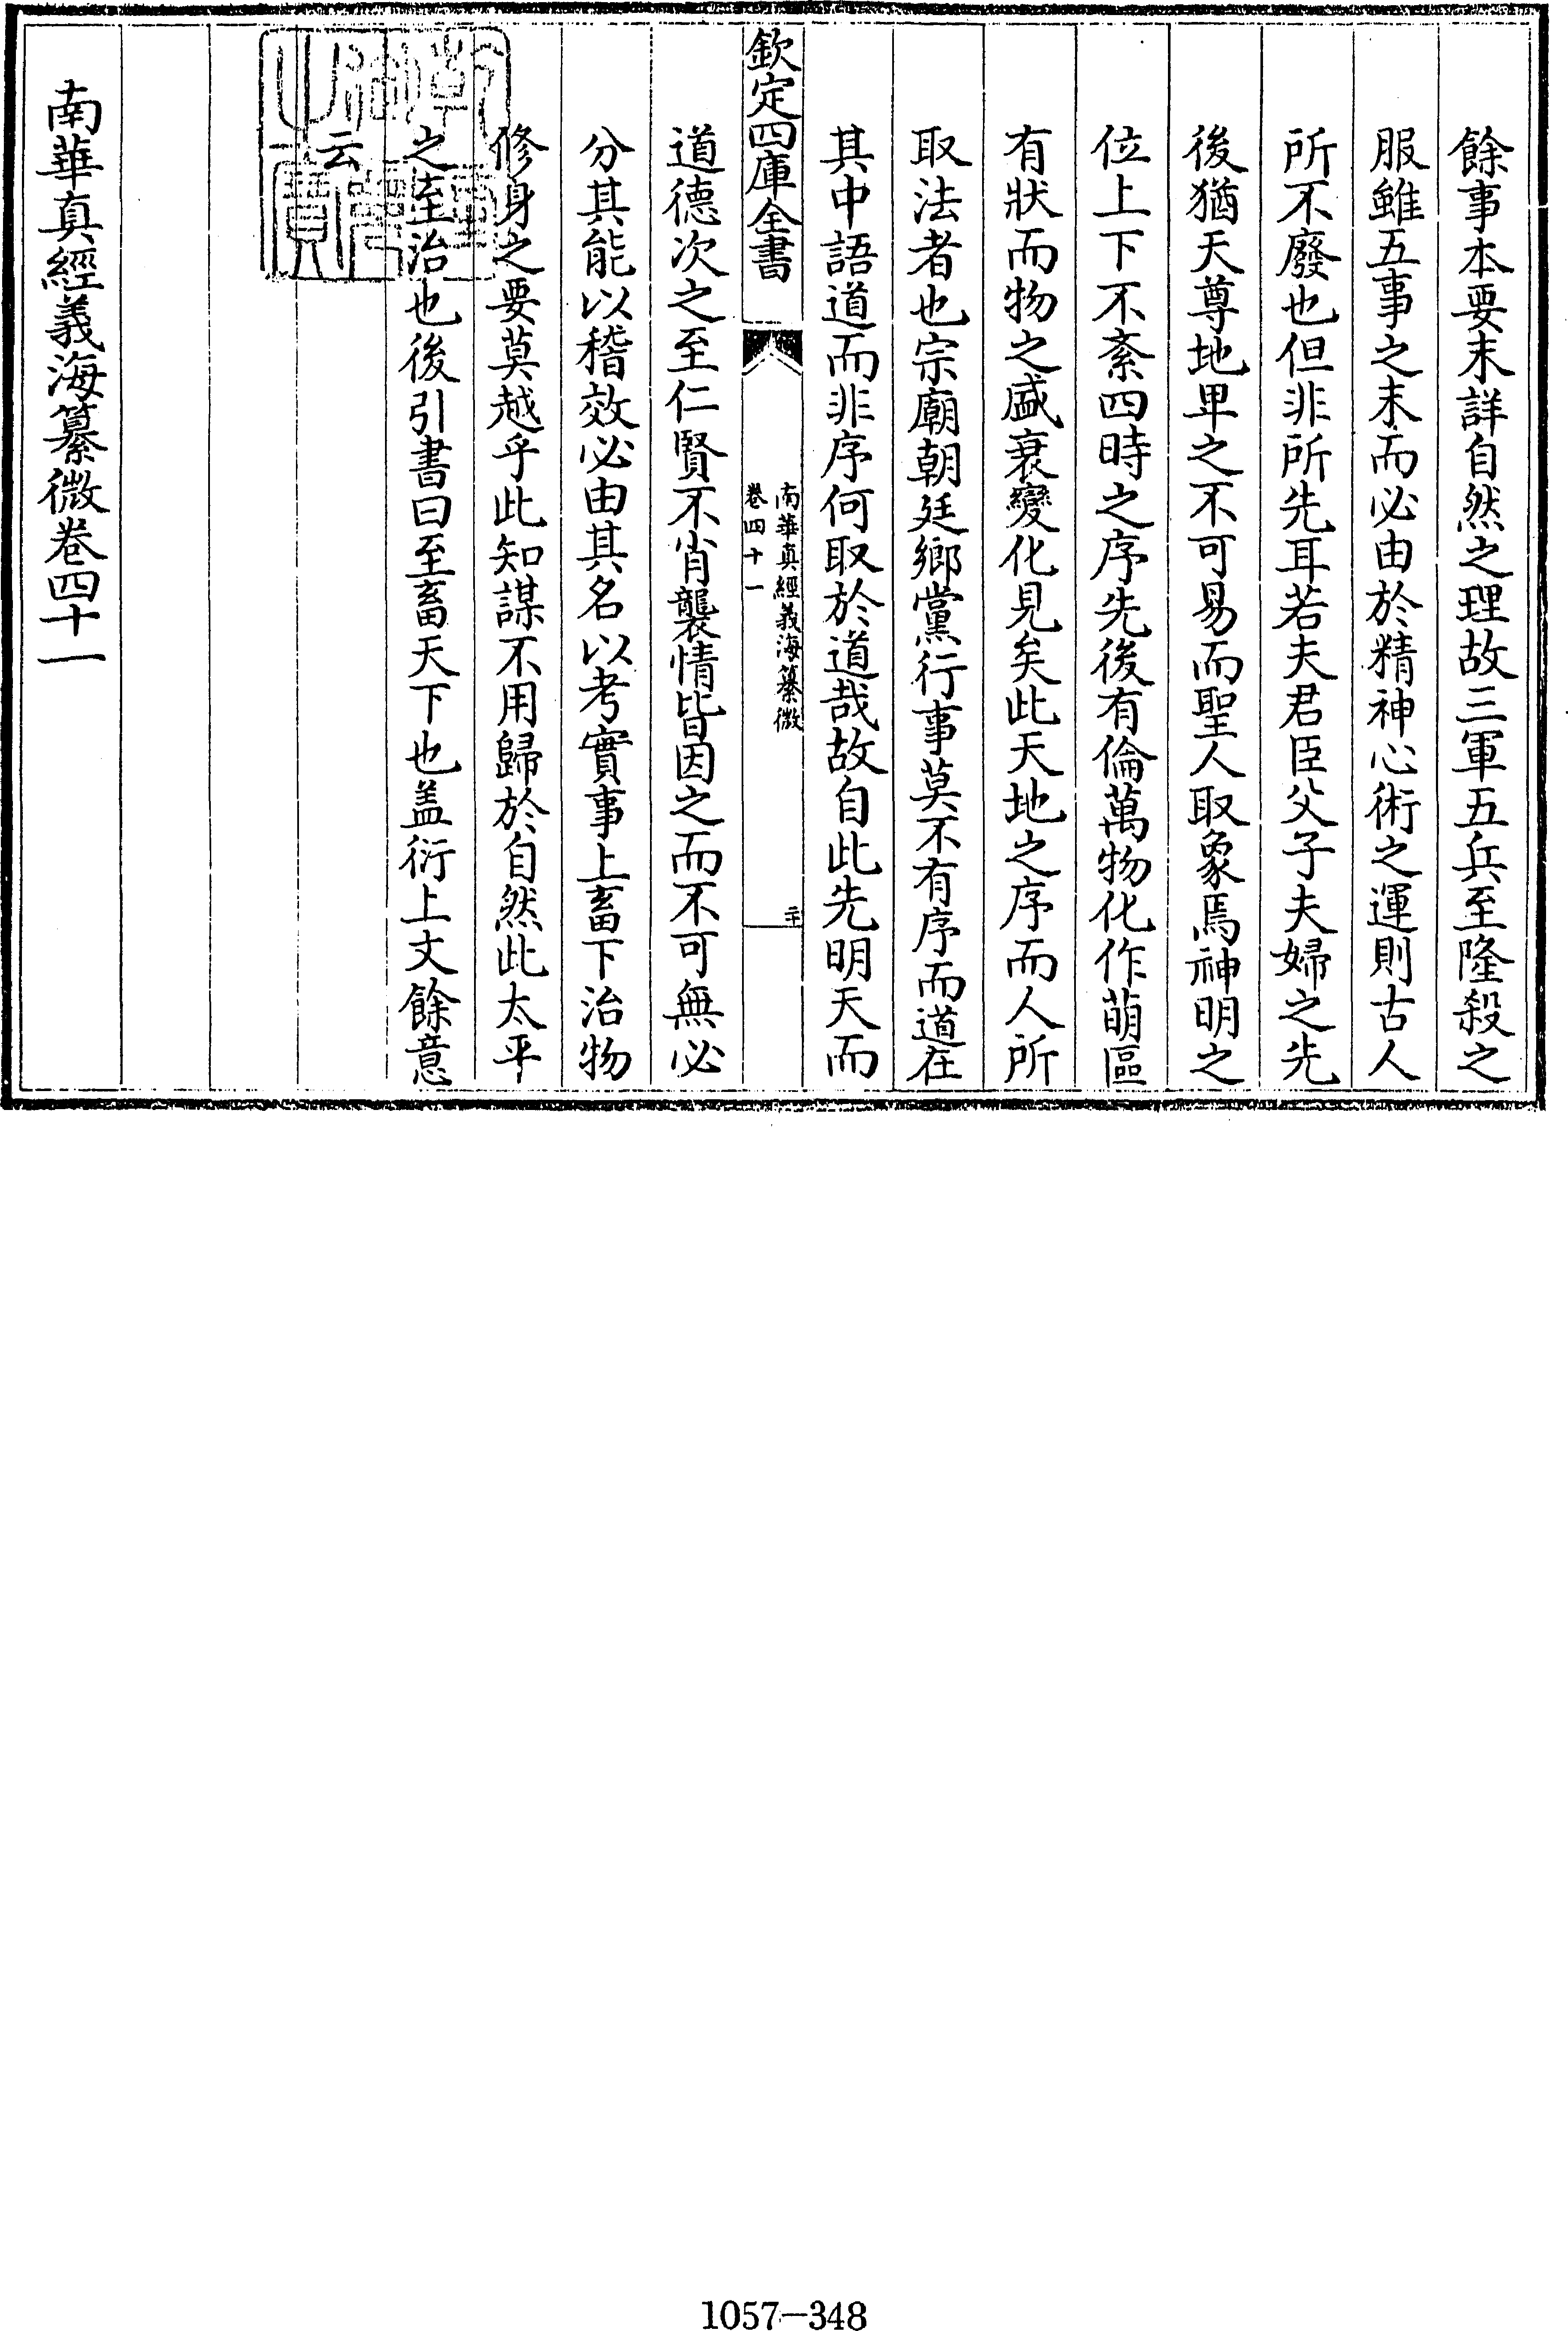 餘事本要末詳自然之理故三軍五兵至隆殺之
服雖五事之末而必由於精神心術之運則古人
所不廢也但非所先耳若夫君臣父子夫婦之先
後猶天尊地卑之不可易而聖人取象焉神明之
位上下不紊四時之序先後有倫萬物化作萌區
有狀而物之盛衰變化見矣此天地之序而人所
取法者也宗廟朝廷鄉黨行事莫不有序而道在
其中語道而非序何取於道哉故自此先明天而
欽定四庫全書
南華真經義海纂微
卷四十一
二十
道德次之至仁賢不肖襲情皆因之而不可無必
分其能以稽效必由其名以考實事上畜下治物
修身之要莫越乎此知謀不用歸於自然此太平
之至治也後引書曰至畜天下也盖衍上文餘意
云
南華真經義海纂微卷四十一
1057-348